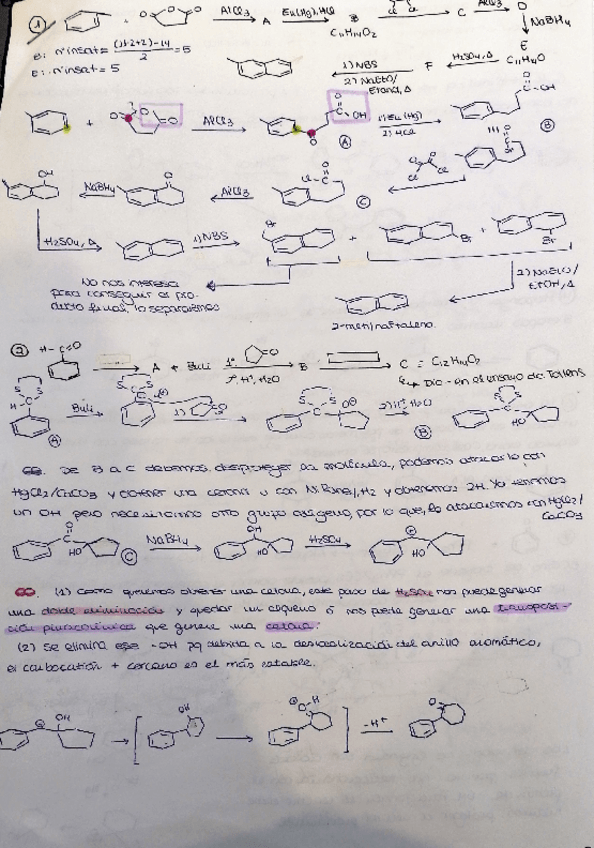 ① + AlCl3 A Zn(Hg), HCl B C AlCl3 D
C11H14O2
NaBH4
E
C11H14O
H2SO4, Δ
F
1) NBS
2) NaEtO/
EtOH, Δ
E: nº insat = (11·2+2)-14 / 2 = 5
E: nº insat = 5
+ AlCl3 OH A 1) Zn(Hg) 2) HCl OH B
C
AlCl3
NaBH4
OH
H2SO4, Δ 1) NBS Br + Br + Br
No nos interesa
para conseguir el pro-
ducto final, lo separaremos
2) NaEtO/
EtOH, Δ
2-metilnaftaleno.
② A + BuLi 1º 2º H+, H2O B C = C12H14O2
Dio - en el ensayo de Tollens
A BuLi 1) 2) H+, H2O HO B
De B a C debemos desproteger la molécula, podemos atacarlo con
HgCl2/CaCO3 y obtener una cetona o con Ni Raney, H2 y obtenemos 2H. Ya tenemos
un OH pero necesitamos otro grupo oxígeno, por lo que, lo atacamos con HgCl2/
CaCO3
HO C NaBH4 OH HO H2SO4 HO
(1) Como queremos obtener una cetona, este paso de H2SO4 nos puede generar
una doble eliminación y quedar un alqueno o nos puede generar una transposi-
ción pinacolínica que genere una cetona.
(2) Se elimina ese -OH pq debido a la deslocalización del anillo aromático,
el carbocatión + cercano es el más estable.
OH OH O-H -H+ O